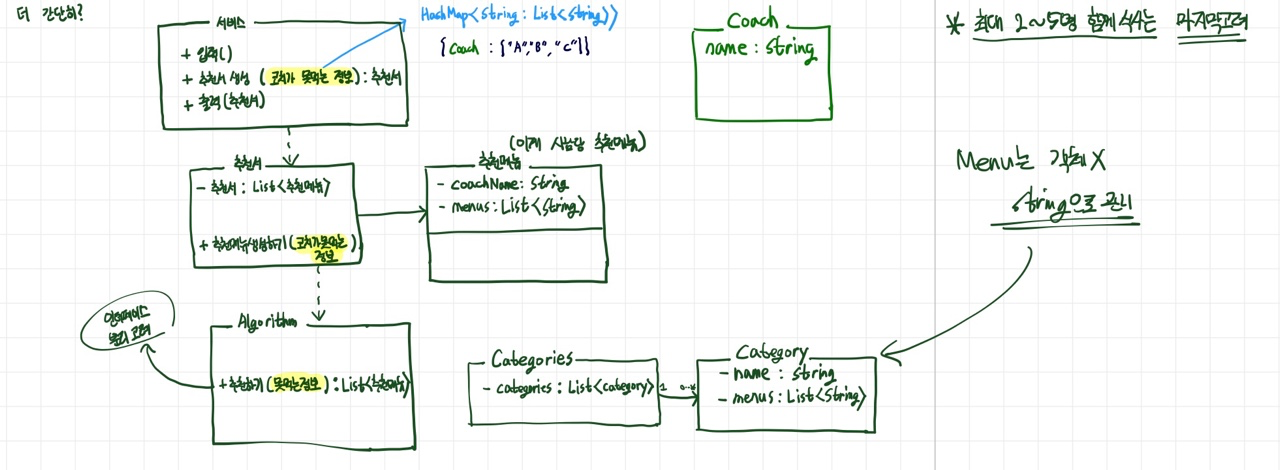 더 간단히?
서비스
+ 입력()
+ 추천서 생성 (코치가 못먹는 정보) : 추천서
+ 출력(추천서)
HashMap<String : List<String>>
{Coach : {"A","B","C"}}
Coach
name : string
* 최대 2~5명 함께 식사는 마지막 고려
추천서
- 추천서 : List<추천메뉴>
+ 추천메뉴생성하기(코치가 못먹는 정보)
(이게 사람당 추천메뉴)
추천메뉴
- coachName : String
- menus : List<String>
Menu는 객체 X
String으로 관리
인터페이스
분리 고려
Algorithm
+ 추천하기(못먹는정보) : List<추천메뉴>
Categories
- categories : List<category>
1 0..*
Category
- name : string
- menus : List<String>